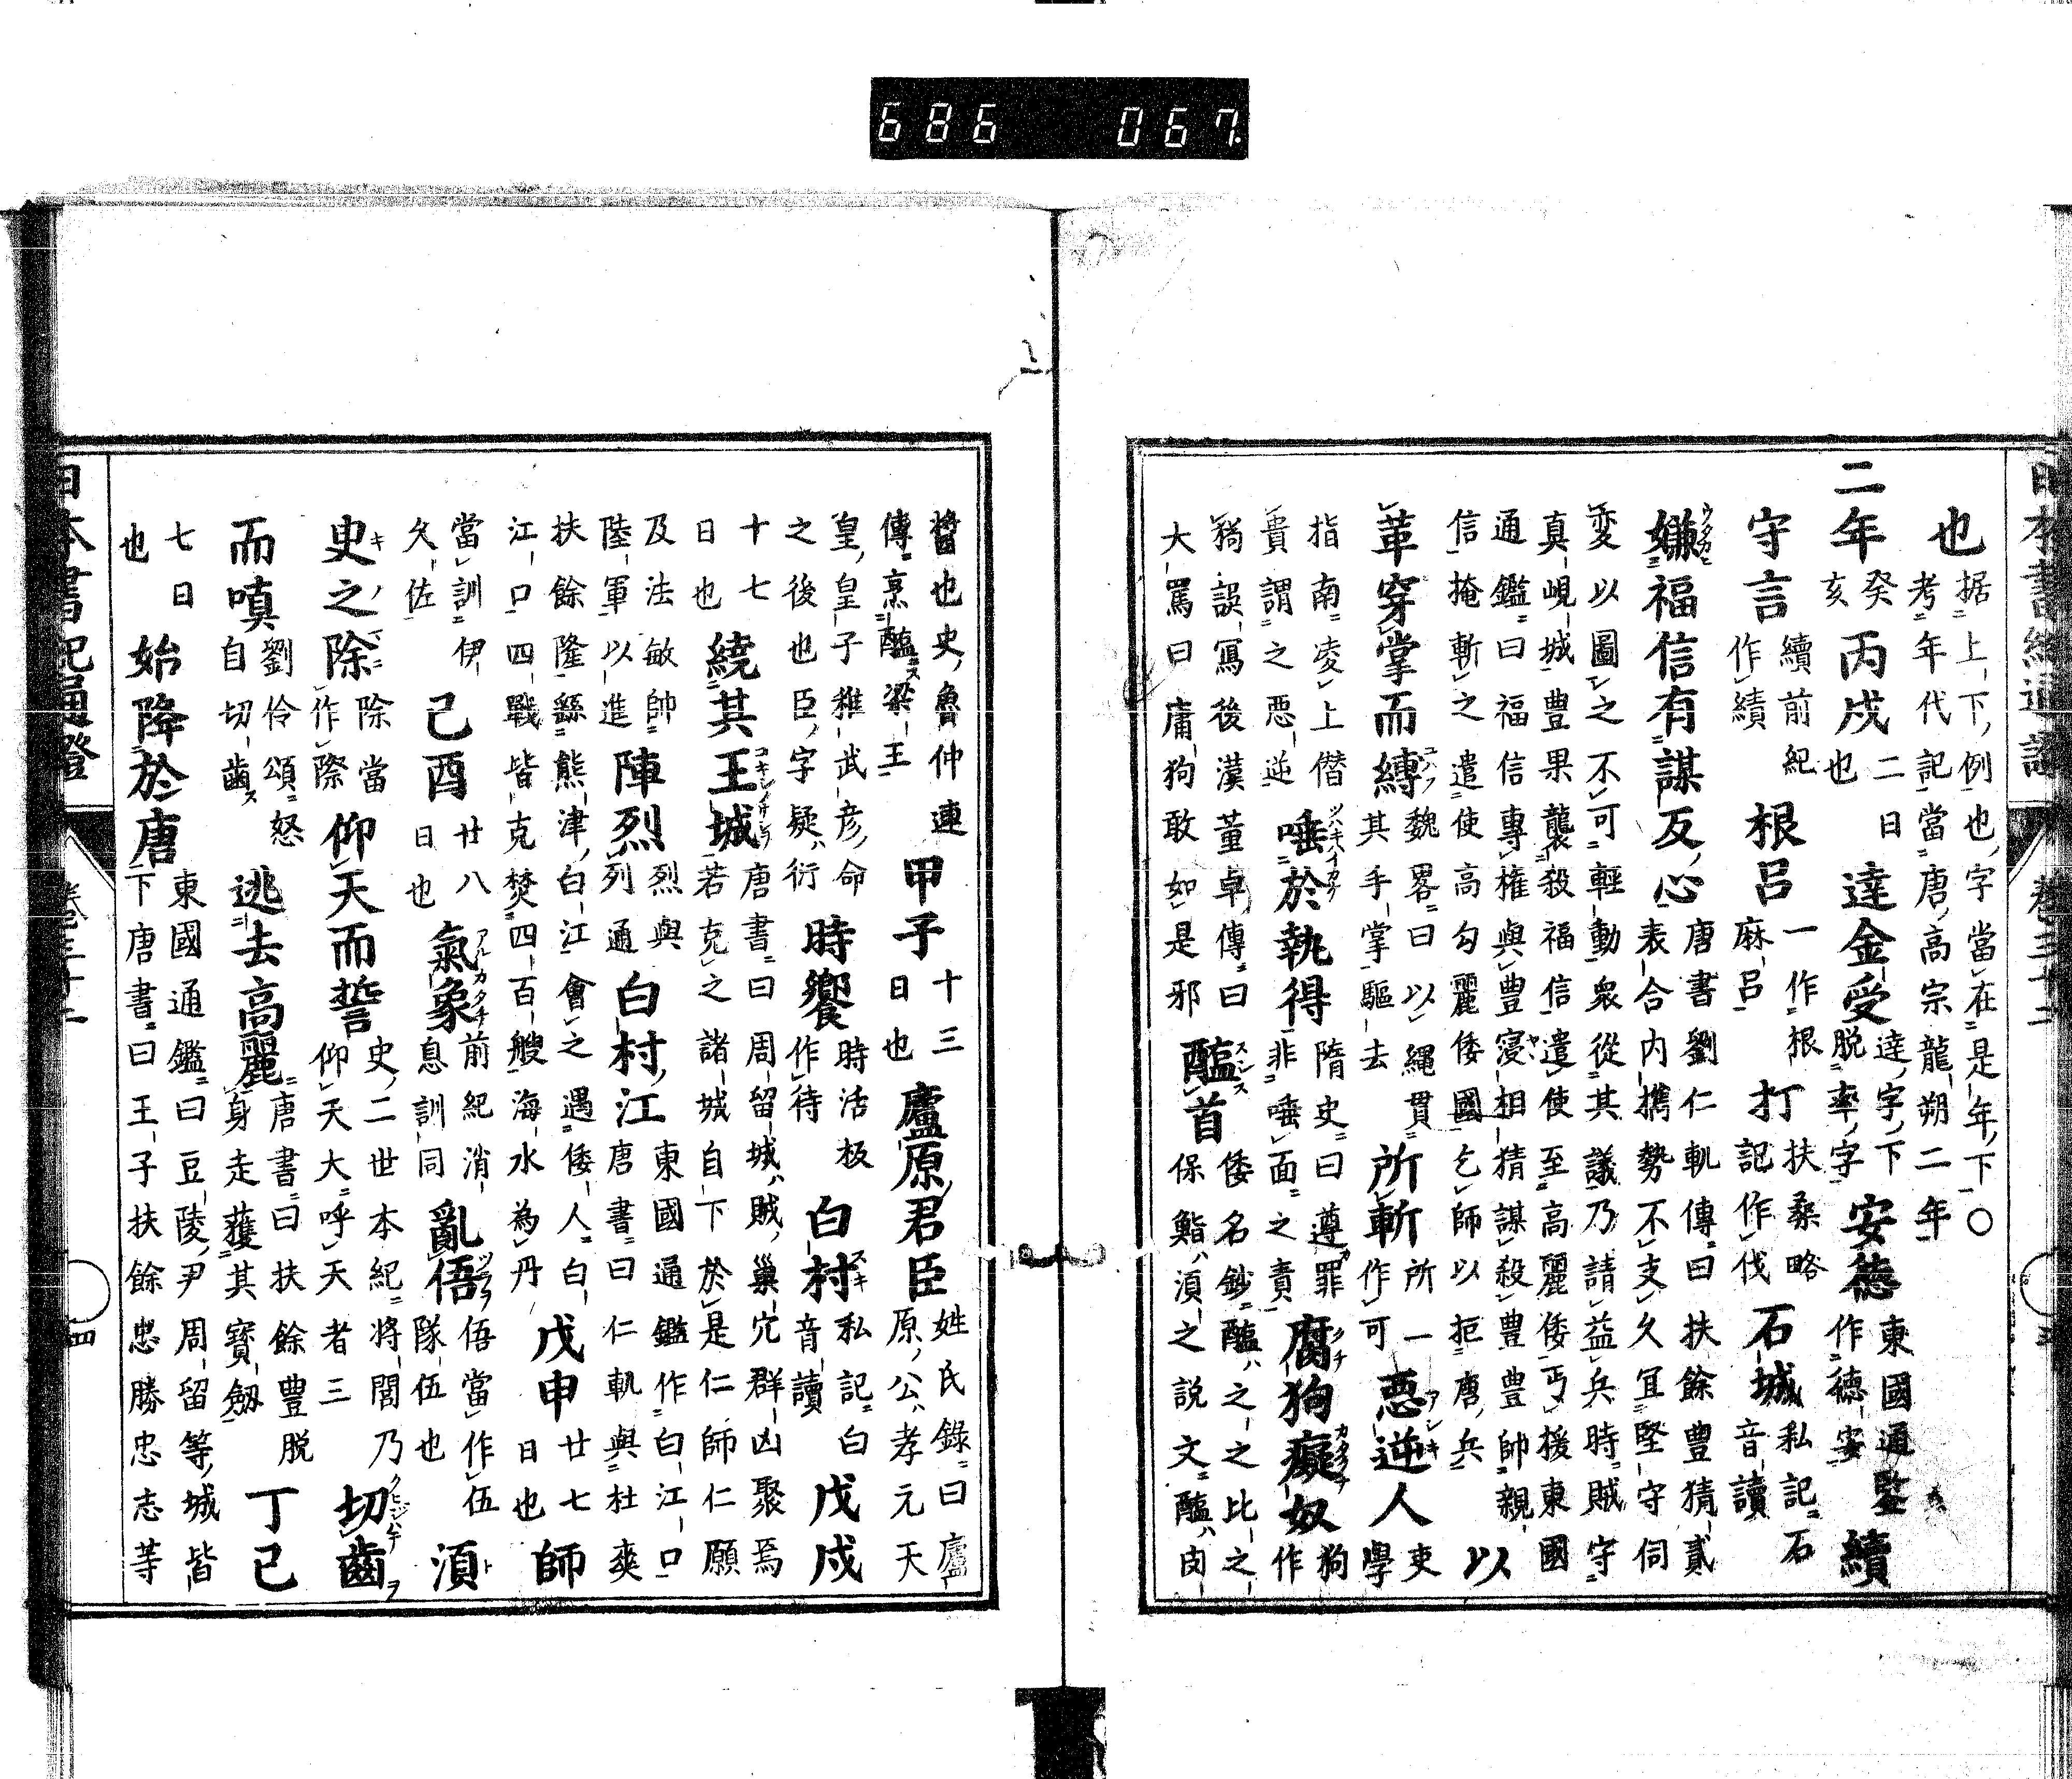 日本書紀通證
卷三十二
也据上下例也字當在是年下〇考年代記當唐高宗龍朔二年
二年癸亥丙戌二日也達金受達字下脱率字安德東國通鑒作德安續
守言續前紀作績根呂一作根麻呂打扶桑略記作伐石城私記石音讀
嫌福信有謀反心唐書劉仁軌傳曰扶餘豊猜貳表合内携勢不支久宜堅守伺
変以圖之不可輕動衆從其議乃請益兵時賊守真峴城豊果襲殺福信遣使至高麗倭丐援東國
通鑑曰福信專權與豊寖相猜謀殺豊豊帥親信掩斬之遣使高勾麗倭國乞師以拒唐兵以
革穿掌而縛魏畧曰以繩貫其手掌驅去所斬所一作可惡逆人吏學
指南凌上僭貴謂之惡逆唾於執得隋史曰遵罪非唾面之責腐狗癡奴狗作
猗誤冩後漢董卓傳曰大罵曰庸狗敢如是邪醢首倭名鈔醢之之比之保鮨湏之説文醢肉
醬也史魯仲連傳烹醢梁王甲子十三日也廬原君臣姓氏錄曰廬原公孝元天
皇皇子稚武彦命之後也臣字疑衍時饗時活板作待白村私記白音讀戊戌
十七日也繞其王城唐書曰周留城賊巢穴群凶聚焉若克之諸城自下於是仁師仁願
及法敏帥陸軍以進陣烈烈與列通白村江東國通鑑作白江口唐書曰仁軌與杜爽
扶餘隆繇熊津白江會之遇倭人白江口四戰皆克焚四百艘海水為丹戊申廿七日也師
當訓伊久佐己酉廿八日也氣象前紀消息訓同亂悟悟當作伍隊伍也湏
臾之除除當作際仰天而誓史二世本紀將閭乃仰天大呼天者三切齒
而嗔劉伶頌怒自切齒逃去高麗唐書曰扶餘豊脱身走獲其寶劒丁巳
七日也始降於唐東國通鑑曰豆陵尹周留等城皆下唐書曰王子扶餘忠勝忠志等
四
686 067